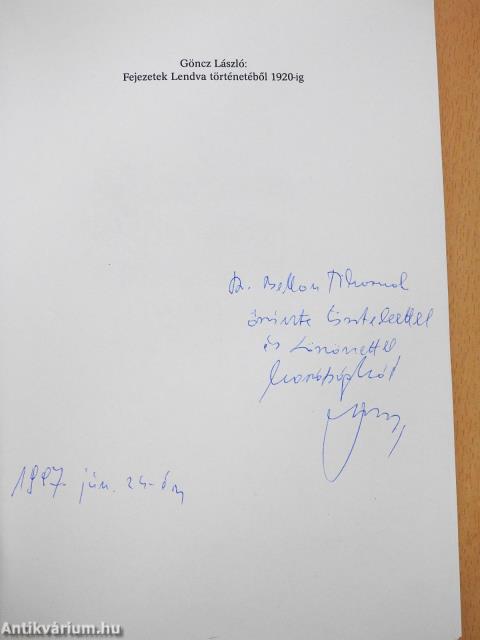 Göncz László:
Fejezetek Lendva történetéből 1920-ig
Dr. Bellon Tibornak
őszinte tisztelettel
és köszönettel
1997. jún. 24-én
Antikvárium.hu